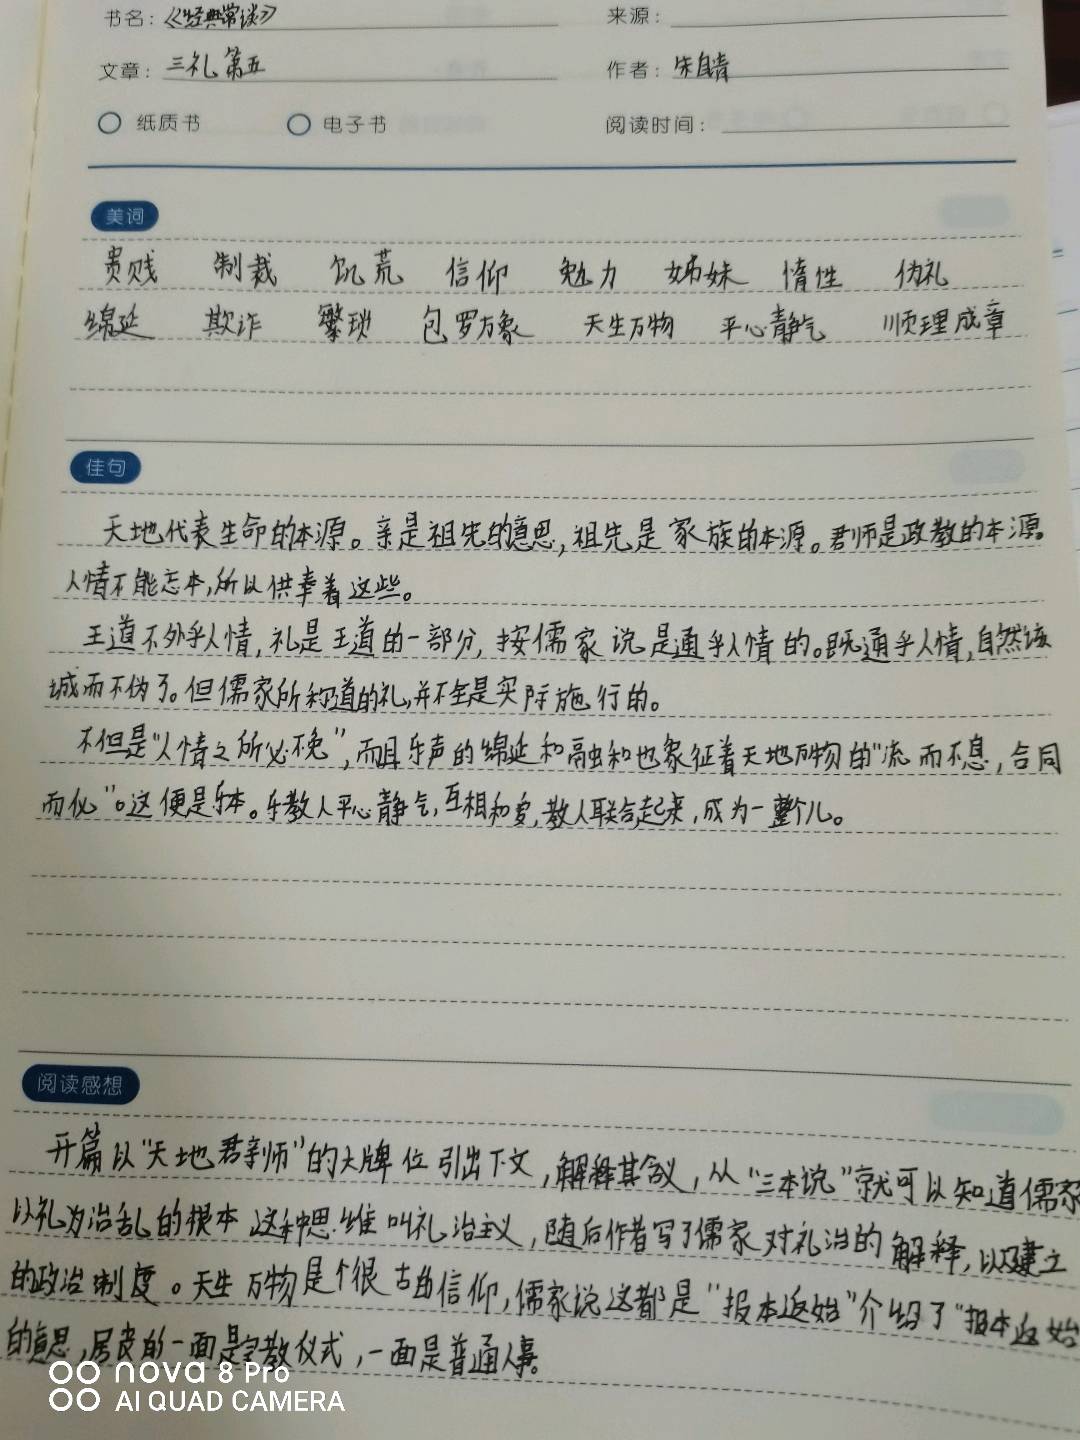 书名：《经典常谈》 来源：
文章：三礼第五 作者：朱自清
纸质书 电子书 阅读时间：
美词
贵贱 制裁 饥荒 信仰 勉力 姊妹 惰性 伪礼
绵延 欺诈 繁琐 包罗万象 天生万物 平心静气 顺理成章
佳句
天地代表生命的本源。亲是祖先的意思，祖先是家族的本源。君师是政教的本源。
人情不能忘本，所以供奉着这些。
王道不外乎人情，礼是王道的一部分，按儒家说是通乎人情的。既通乎人情，自然该
城而不伪了。但儒家所称道的礼，并不全是实际施行的。
不但是“人情之所必不免”，而且乐声的绵延和融和也象征着天地万物的“流而不息，合同
而化”。这便是乐本。乐教人平心静气，互相和爱，教人联合起来，成为一整个儿。
阅读感想
开篇以“天地君亲师”的大牌位引出下文，解释其含义，从“三本说”就可以知道儒家
以礼为治乱的根本 这种思维叫礼治主义，随后作者写了儒家对礼治的解释，以及建立
的政治制度。天生万物是个很古的信仰，儒家说这都是“报本返始”介绍了“报本返始
的意思，居丧的一面是宗教仪式，一面是普通人事。
nova 8 Pro
AI QUAD CAMERA